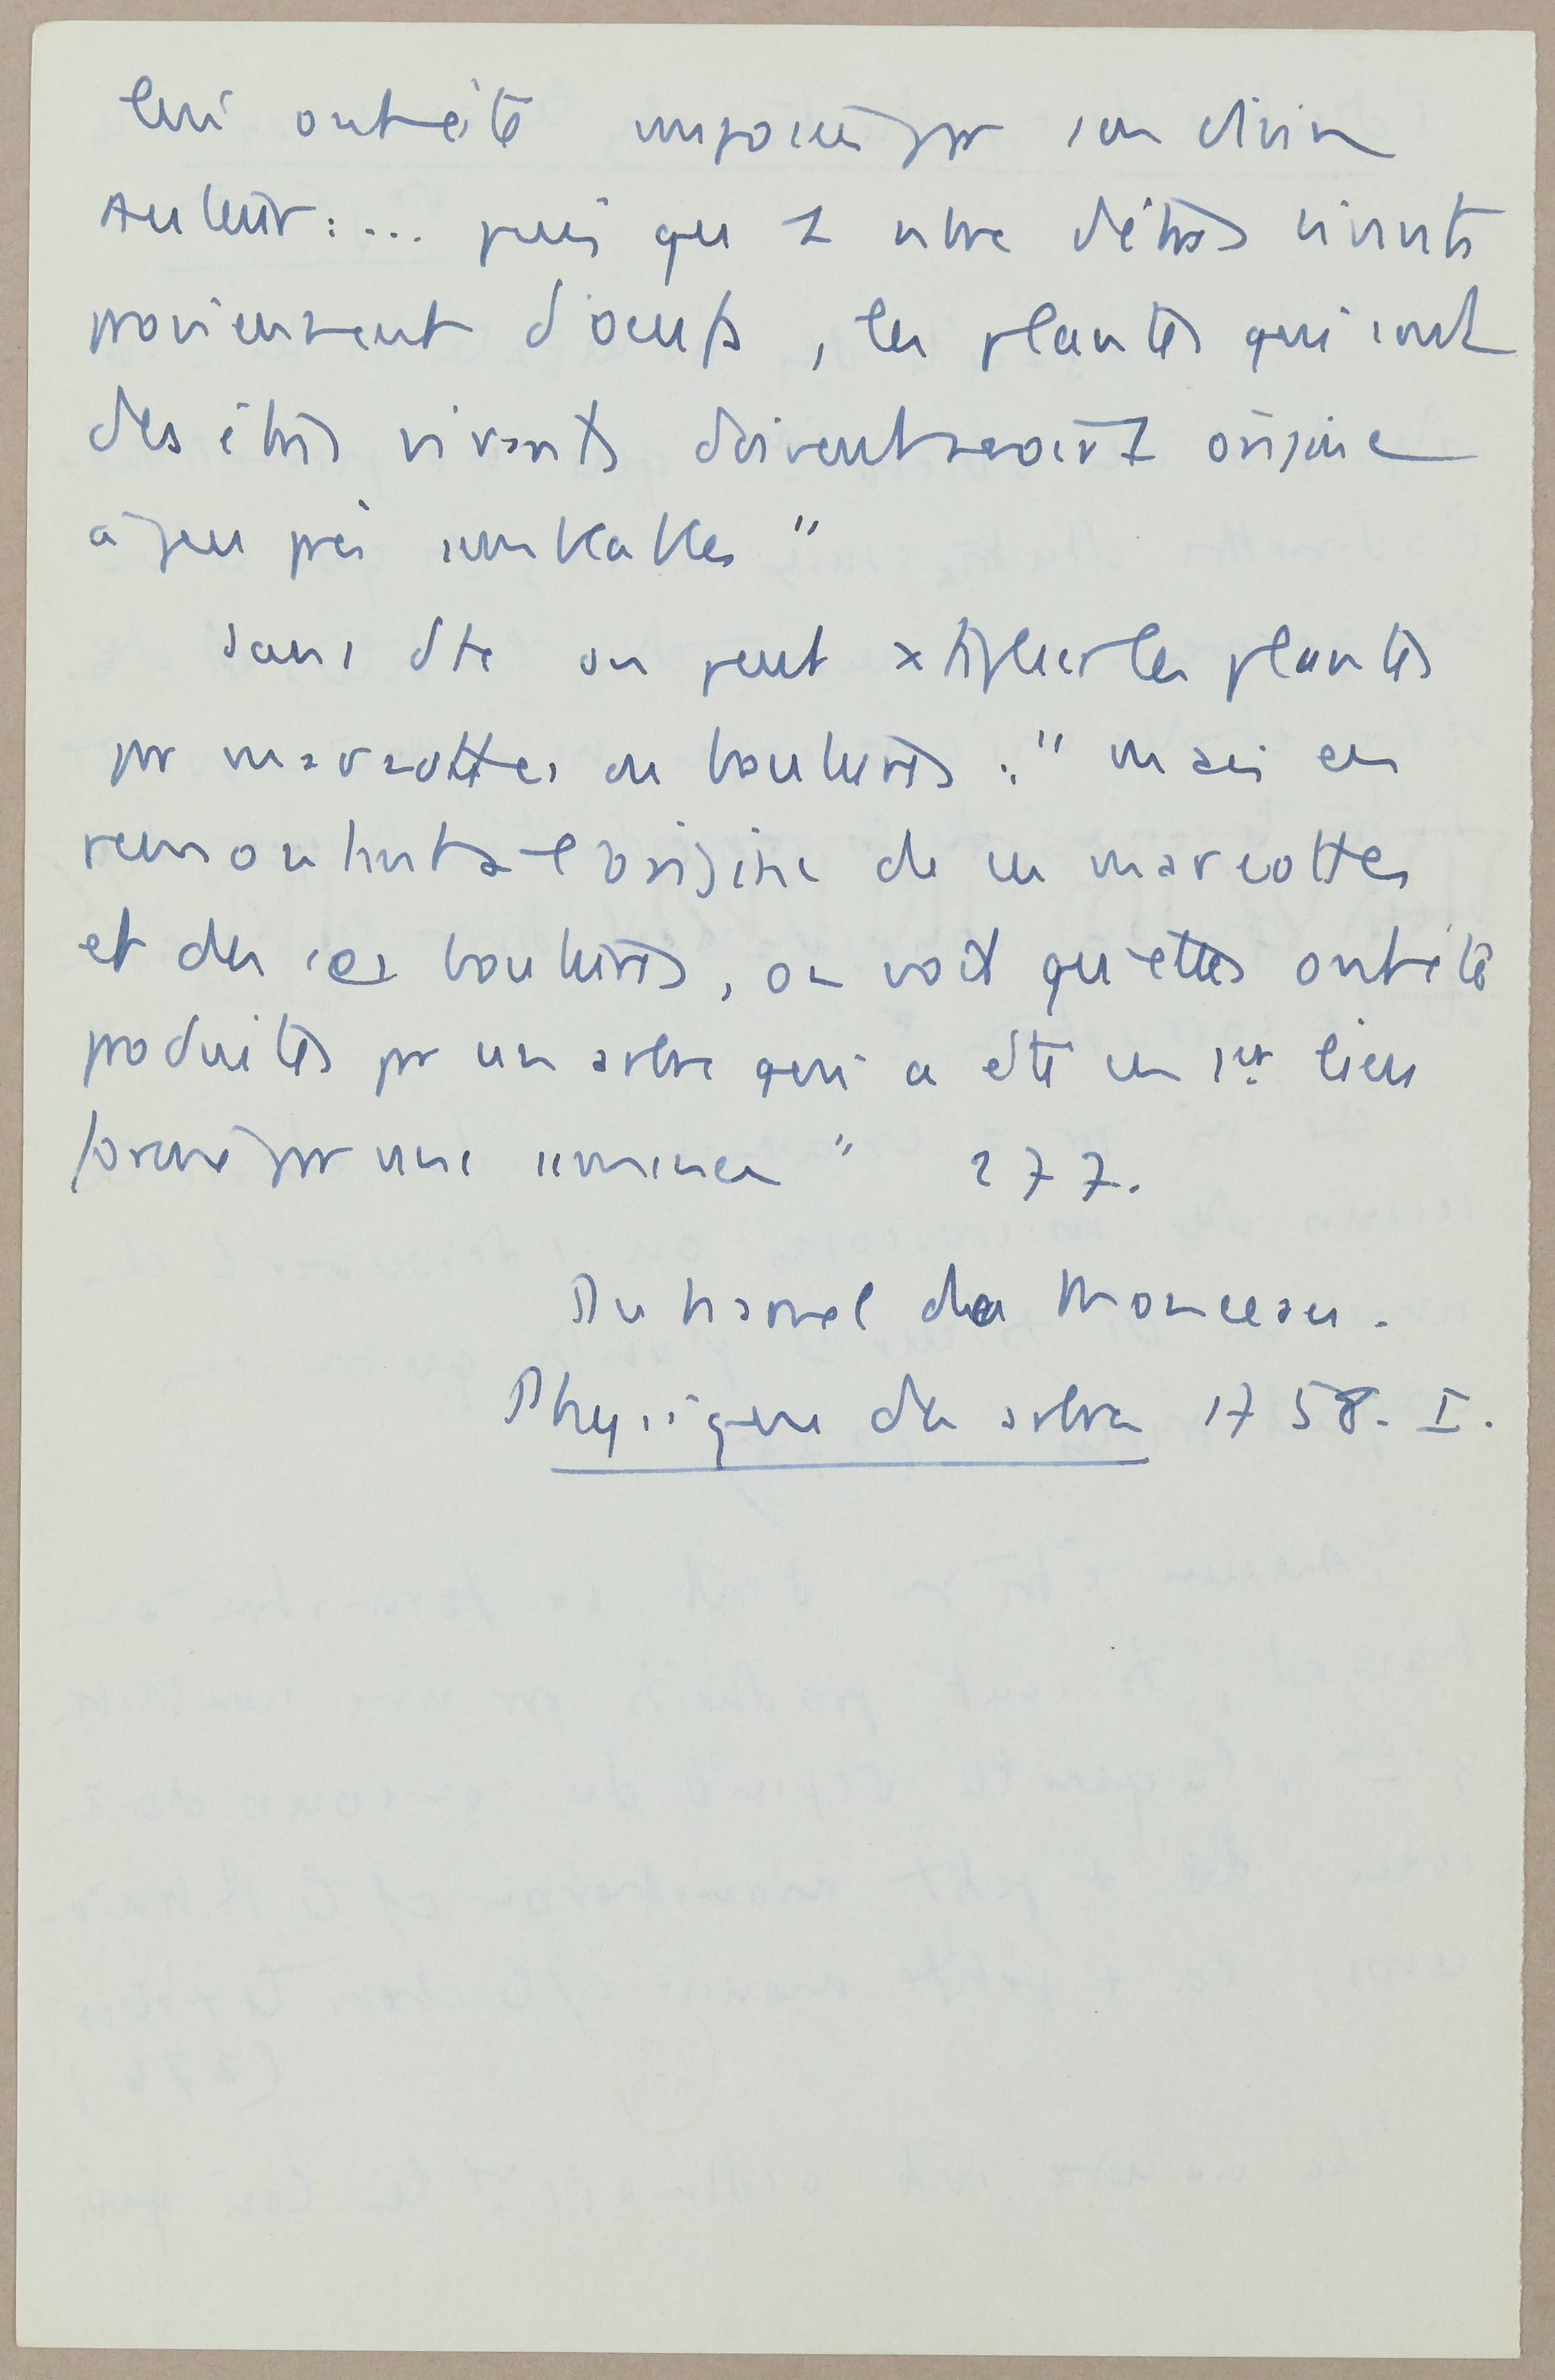 lui ont été imposées pr son divin
Auteur : ... puis que nbre d'êtres vivants
proviennent d'oeufs, les plantes qui sont
des êtres vivants doivent avoir origine
à peu près semblables "
Sans dte on peut xtiplier les plantes
pr marcottes ou boutures : " mais en
remontant à l'origine de ces marcottes
et de ces boutures, on voit qu'elles ont été
produites pr un arbre qui a été en 1er lieu
formé pr une semence " 277.
Duhamel du Monceau.
Physique des arbres 1758. I.